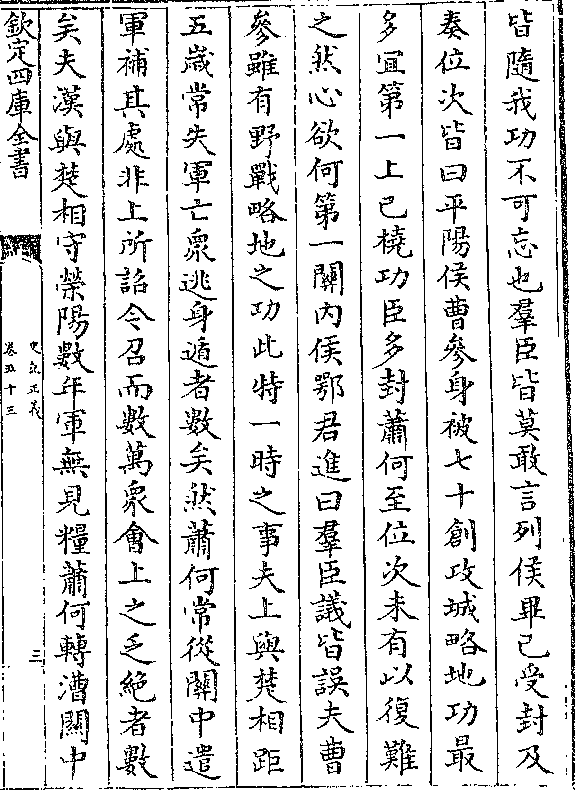 皆隨我功不可忘也羣臣皆莫敢言列侯畢已受封及
奏位次皆曰平陽侯曹參身被七十創攻城略地功最
多宜第一上已橈功臣多封蕭何至位次未有以復難
之然心欲何第一關内侯鄂君進曰羣臣議皆誤夫曹
參雖有野戰略地之功此特一時之事夫上與楚相距
五歲常失軍亡衆逃身遁者數矣然蕭何常從關中遣
軍補其處非上所詔令召而數萬衆會上之乏絶者數
矣夫漢與楚相守滎陽數年軍無見糧蕭何轉漕關中
欽定四庫全書
史記正義
卷五十三
三